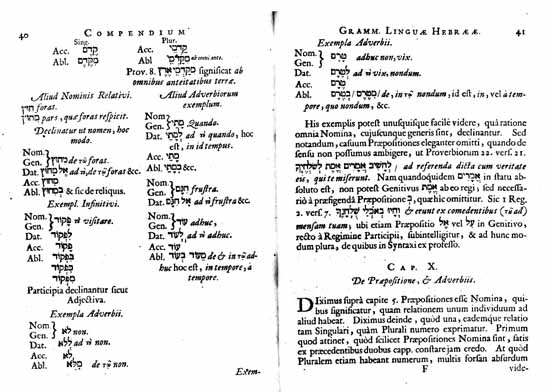 40 COMPENDIUM
Sing. Plur.
Acc. קֶדֶם Acc. קַדְמֵי
Abl. מִקֶּדֶם Abl. מִקַּדְמֵי ab omni ante.
Prov. 8. מִקַּדְמֵי אָרֶץ significat ab
omnibus anteitatibus terræ.
Aliud Nominis Relativi.
חוּץ foras.
pars, quæ foras respicit.
Declinatur ut nomen, hoc
modo.
Nom.
Gen. חוּץ de τῷ foras.
Dat. ad τὸ, de τῷ foras &c.
Acc.
Abl. & sic de reliquis.
Exempl. Infinitivi.
Nom.
Gen. פְּקוֹד τὸ visitare.
Dat. לִפְקוֹד
Acc. פְּקוֹד
Abl. בִּפְקוֹד
כִּפְקוֹד
מִפְּקוֹד
Participia declinantur sicut
Adjectiva.
Exempla Adverbii.
Nom.
Gen. לֹא non.
Dat. לְלֹא ad τὸ non.
Acc. לֹא
Abl. מִלֹּא de τῷ non.
Aliud Adverbiorum
exemplum.
Nom.
Gen. מָתַי Quando.
Dat. לְמָתַי ad τὸ quando, hoc
est, in id tempus.
Acc. מָתַי
Abl. מִמָּתַי &c.
Nom.
Gen. חִנָּם frustra.
Dat. ad τὸ frustra &c.
Nom.
Gen. עוֹד adhuc,
Dat. לְעוֹד ad τὸ adhuc.
Acc. עוֹד
Abl. בְּעוֹד מֵעוֹד de & in τῷ ad-
huc hoc est, in tempore, à
tempore.
Exem-
GRAMM. LINGUÆ HEBRÆÆ. 41
Exempla Adverbii.
Nom.
Gen. טֶרֶם adhuc non, vix.
Dat. לְטֶרֶם ad τὸ vix, nondum.
Acc. טֶרֶם
Abl. מִטֶּרֶם/בְּטֶרֶם de, in τῷ nondum; id est, in, vel à tem-
pore, quo nondum, &c.
His exemplis potest unusquisque facilè videre, quâ ratione
omnia Nomina, cujuscunque generis sint, declinantur. Sed
notandum, casuum Præpositiones eleganter omitti, quando de
sensu non possumus ambigere, ut Proverbiorum 22. vers. 21.
לְהָשִׁיב אֲמָרִים אֱמֶת לְשֹׁלְחֶךָ ad referenda dicta cum veritate
eis, qui te miserunt. Nam quandoquidem אֲמָרִים in statu ab-
soluto est, non potest Genitivus אֱמֶת ab eo regi, sed necessa-
riò à præfigendâ Præpositione בְּ, quæ hîc omittitur. Sic 1 Reg.
2. vers. 7. וְהָיוּ בְּאֹכְלֵי שֻׁלְחָנֶךָ & erunt ex comedentibus (τῷ ad)
mensam tuam; ubi etiam Præpositio אֶל vel עַל in Genitivo,
recto à Regimine Participii, subintelligitur, & ad hunc mo-
dum plura, de quibus in Syntaxi ex professo.
CAP. X.
De Præpositione, & Adverbiis.
Diximus suprà capite 5. Præpositiones esse Nomina, qui-
bus significatur, quam relationem unum individuum ad
aliud habeat. Diximus deinde, quòd una, eademque relatio
tam Singulari, quàm Plurali numero exprimatur. Primum
quod attinet, quòd scilicet Præpositiones Nomina sint, satis
ex præcedentibus duobus capp. constare jam credo. At quòd
Pluralem etiam habeant numerum, multis forsan absurdum
F vide-